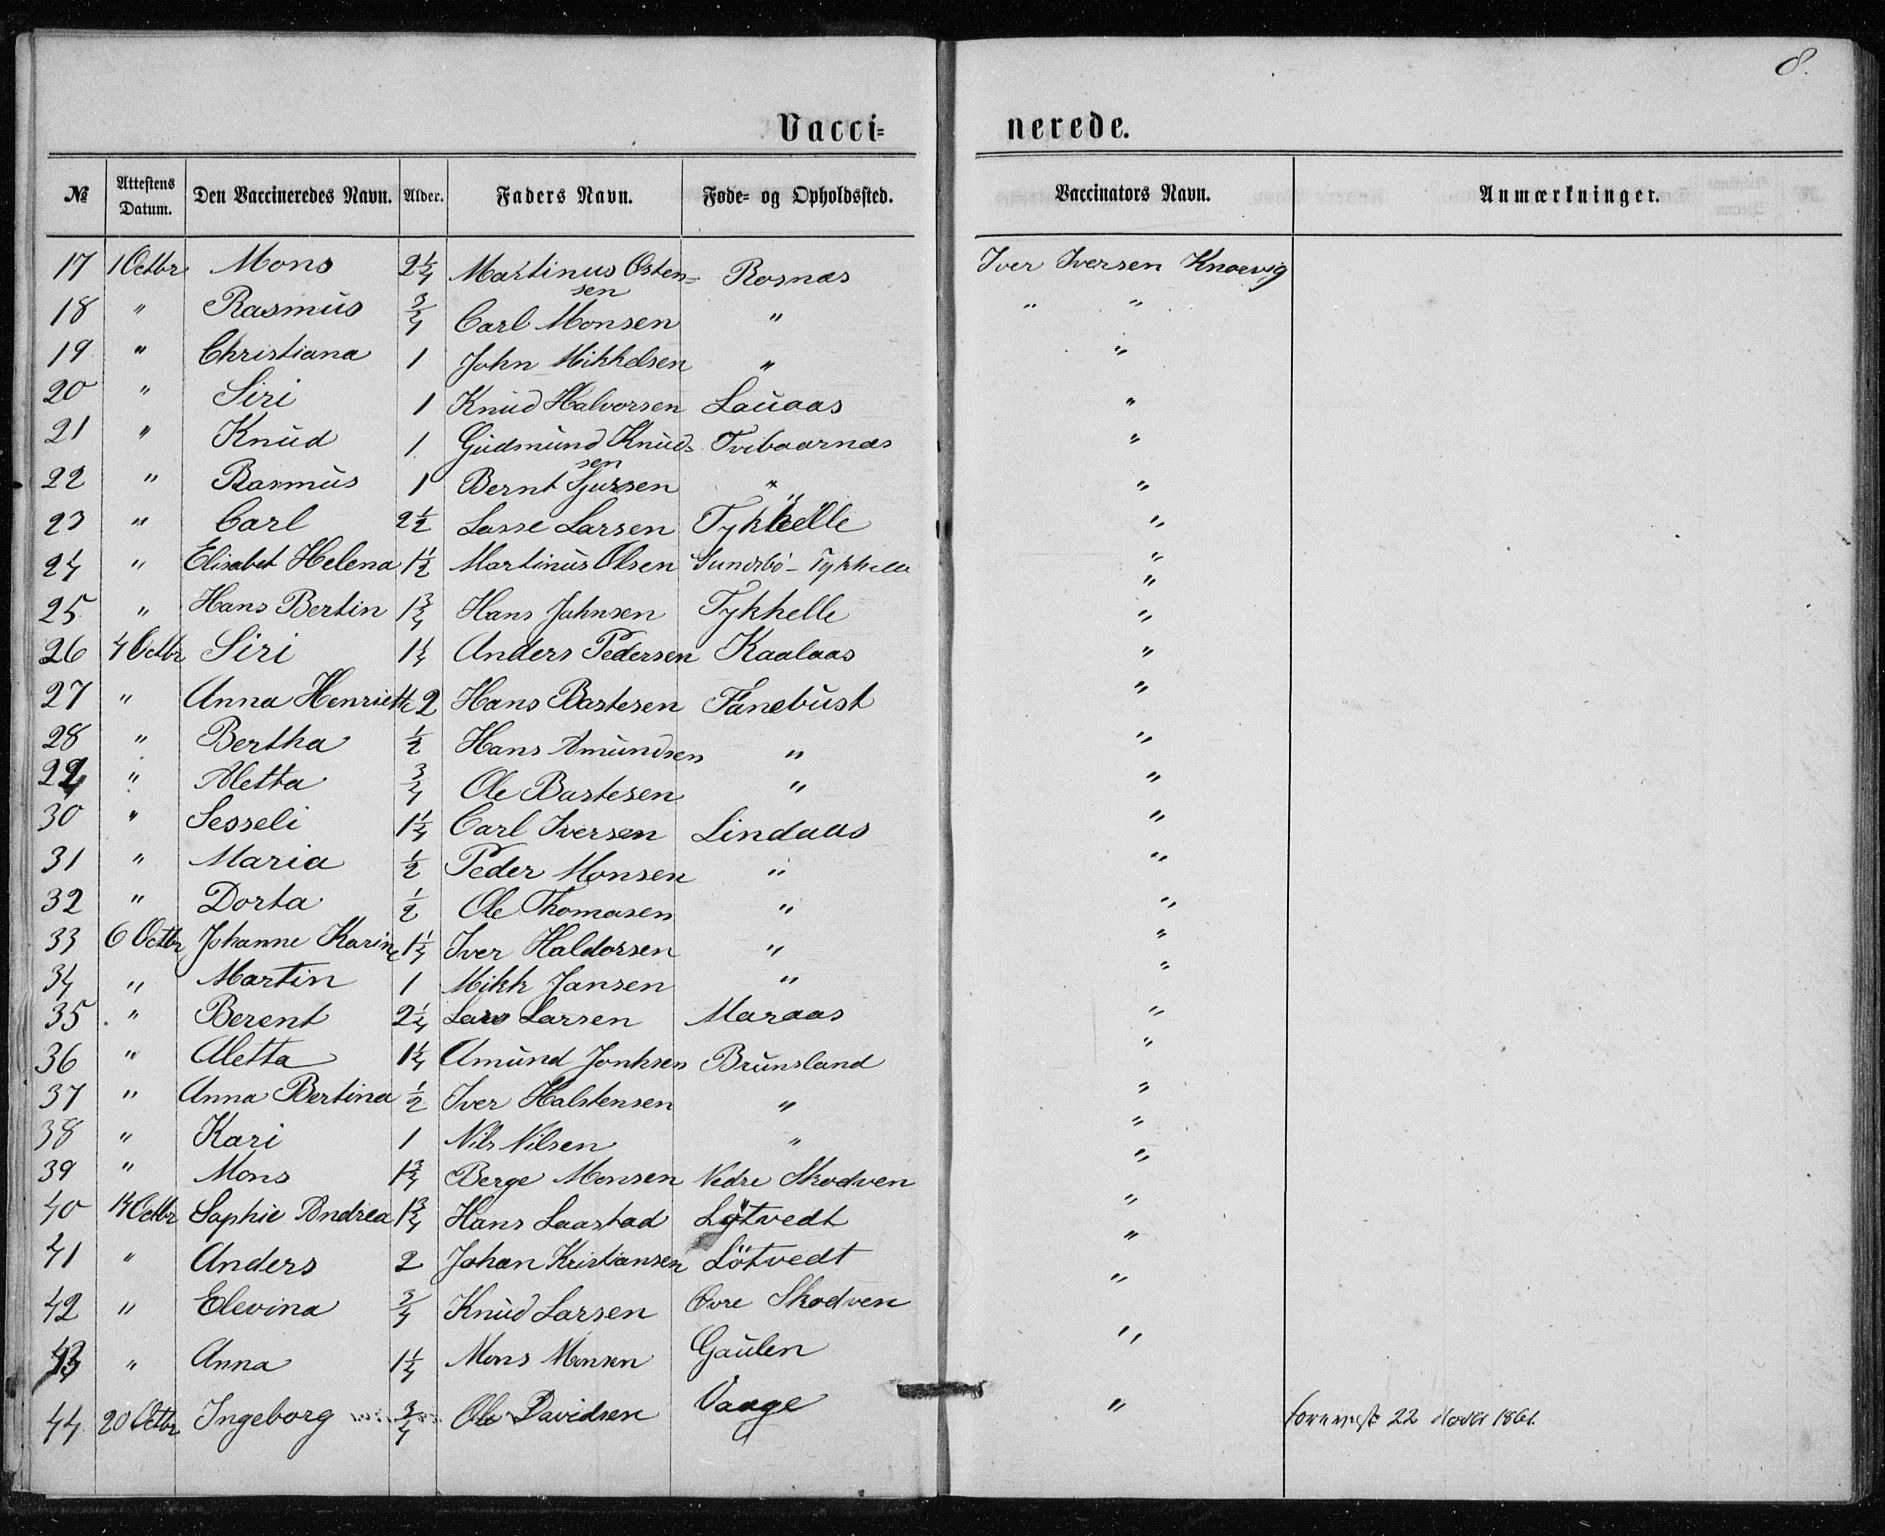 8.
Vacci= nerede.
№ Attestens Datum. Den Vaccineredes Navn. Alder. Faders Navn. Føde- og Opholdssted. Vaccinators Navn. Anmærkninger.
17 1 Octbr Mons 2¼ Martinus Osten= sen Rosnæs Iver Iversen Knarvig
18 " Rasmus ¾ Carl Monsen " " "
19 " Christiana 1 John Mikkelsen " "
20 " Siri 1 Knud Halvorsen Lauaas "
21 " Knud 1 Gudmund Knud= sen Tvibaarnæs "
22 " Rasmus 1 Bernt Sjursen " "
23 " Carl 2½ Lasse Larsen Tykhelle "
24 " Elisabet Helena 1½ Martinus Olsen Sundsbö - Tykhelle "
25 " Hans Bertin 1¾ Hans Johnsen Tykhelle "
26 4 Octbr Siri 1¼ Anders Pedersen Kaalaas "
27 " Anna Henriette 2 Hans Bastesen Fanebust "
28 " Bertha ½ Hans Amundsen " "
29 " Aletta ¾ Ole Bastesen " "
30 " Sesseli 1¼ Carl Iversen Lindaas "
31 " Maria ½ Peder Monsen " "
32 " Dorta ½ Ole Thomasen " "
33 6 Octbr Johanne Karine 1¼ Iver Haldorsen " "
34 " Martin 1 Mikk Jansen " "
35 " Berent 2¼ Lars Larsen Maraas "
36 " Aletta 1¼ Amund Jonhsen Brunsland "
37 " Anna Bertina ½ Iver Halstensen " "
38 " Kari 1 Nils Nilsen " "
39 " Mons 1¾ Berge Monsen Nedre Skodven "
40 14 Octbr Sophie Andrea 1¾ Hans Laastad Lötvedt "
41 " Anders 2 Johan Kristiansen Lötvedt "
42 " Elevina ¾ Knud Larsen Övre Skodven "
43 " Anna 1¼ Mons Monsen Gaulen "
44 20 Octbr Ingeborg ¾ Ole Davidsen Vaage " 22 Novbr 1861.